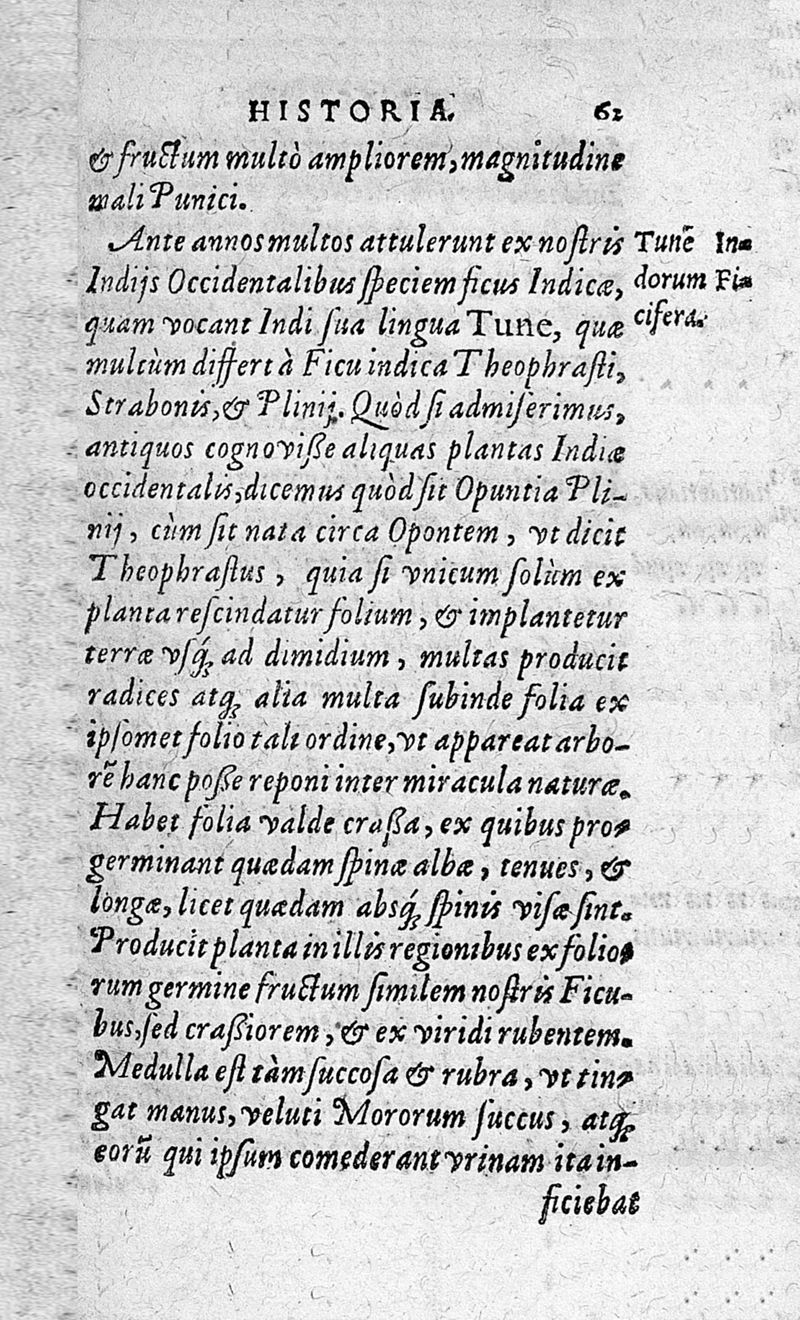 HISTORIA. 62
& fructum multò ampliorem, magnitudine
mali Punici.
Ante annos multos attulerunt ex nostris
Indijs Occidentalibus speciem ficus Indicæ,
quam vocant Indi sua lingua Tune, quæ
multùm differt à Ficu indica Theophrasti,
Strabonis, & Plinij. Quòd si admiserimus,
antiquos cognovisse aliquas plantas Indiæ
occidentalis, dicemus quòd sit Opuntia Pli-
nij, cùm sit nata circa Opontem, vt dicit
Theophrastus, quia si vnicum solùm ex
planta rescindatur folium, & implantetur
terræ vsq́ꝫ ad dimidium, multas producit
radices atqꝫ alia multa subinde folia ex
ipsomet folio tali ordine, vt appareat arbo-
rē hanc posse reponi inter miracula naturæ.
Habet folia valde crassa, ex quibus pro-
germinant quædam spinæ albæ, tenues, &
longæ, licet quædam absq́ꝫ spinis visæ sint.
Producit planta in illis regionibus ex folio-
rum germine fructum similem nostris Ficu-
bus, sed crassiorem, & ex viridi rubentem.
Medulla est tàm succosa & rubra, vt tin-
gat manus, veluti Mororum succus, atqꝫ
eorū qui ipsum comederant vrinam ita in-
ficiebat
Tunē In-
dorum Fi-
cifera.